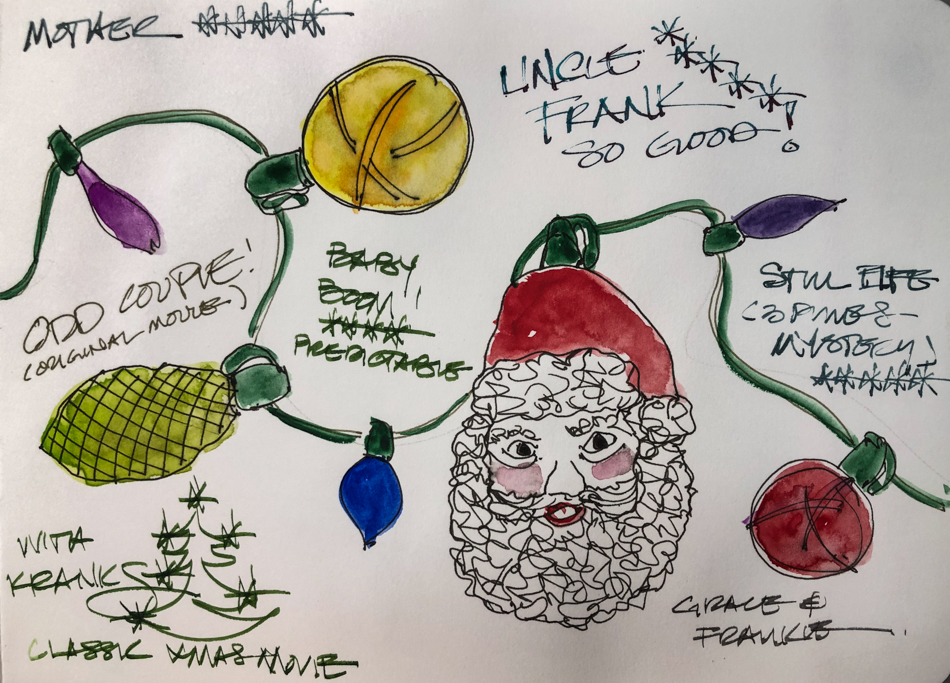 MOTHER *****
UNCLE
FRANK *****!
SO GOOD
ODD COUPLE!
(ORIGINAL MOVIE)
BABY
BOOM!
****
PREDICTABLE
STILL LIFE
(3 PINES -
MYSTERY!
*****
WITH
KRANKS
CLASSIC XMAS MOVIE
GRACE &
FRANKIE